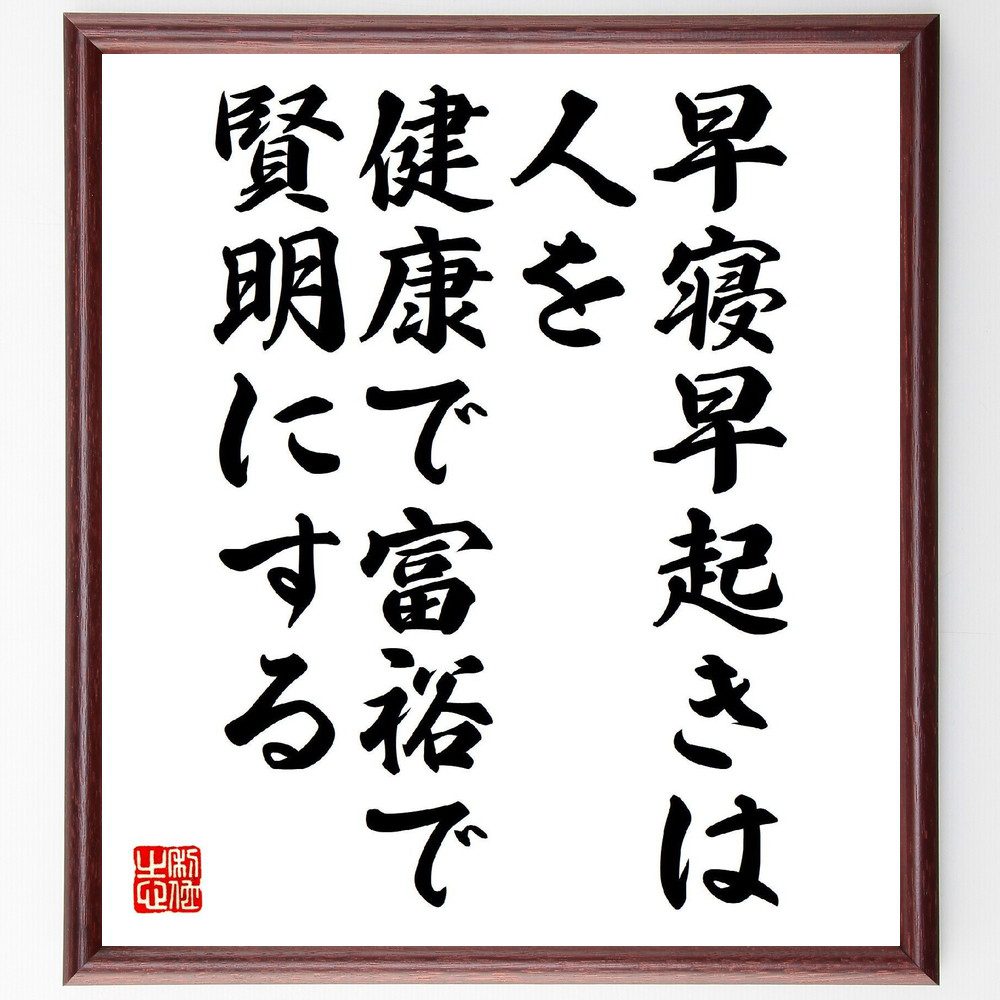 早寝早起きは
人を
健康で富裕で
賢明にする